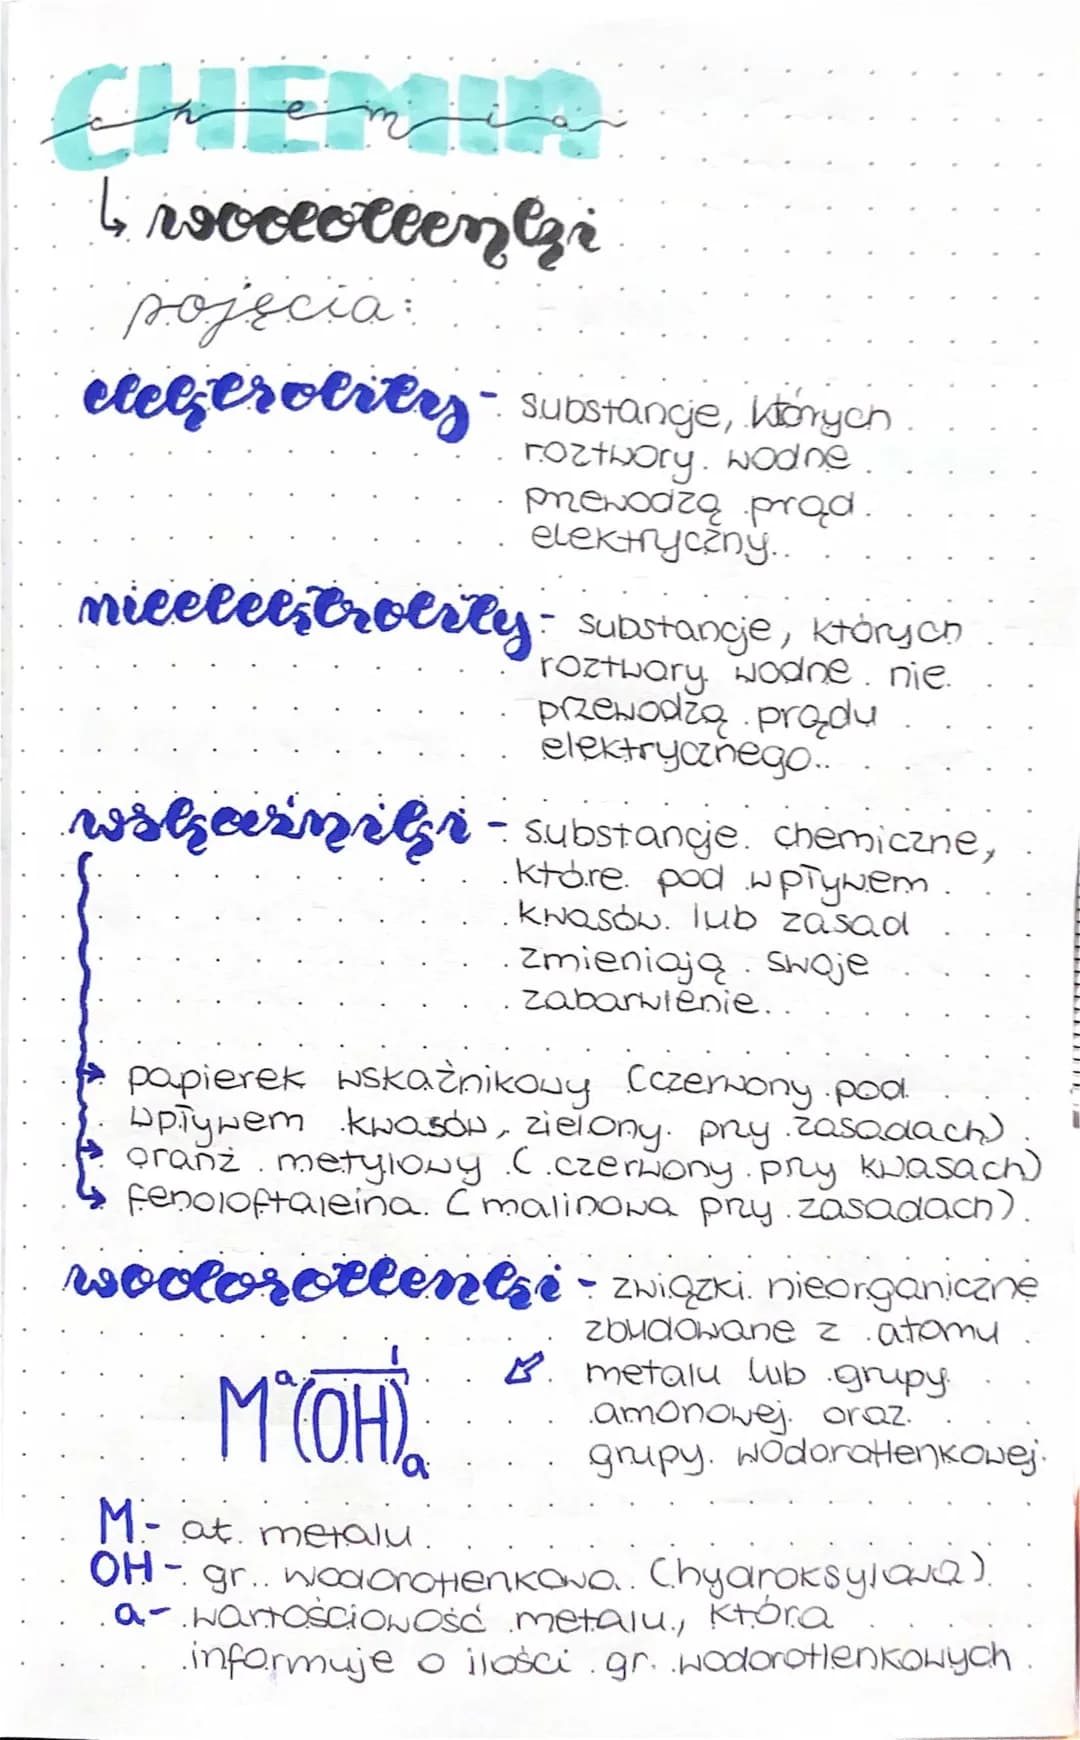 CHEMIA
chemia
↳ wodorotlenki
pojęcia:
elektrolity - substancje, których
roztwory wodne
przewodzą prąd
elektryczny.
nieelektrolity - substancje, których
roztwory wodne nie
przewodzą prądu
elektrycznego.
wskaźniki - substancje chemiczne,
które pod wpływem
kwasów lub zasad
zmieniają swoje
zabarwienie.
→ papierek wskaźnikowy (czerwony pod
wpływem kwasów, zielony przy zasadach)
→ oranż metylowy (czerwony przy kwasach)
→ fenoloftaleina (malinowa przy zasadach)
wodorotlenki - związki nieorganiczne
zbudowane z atomu
metalu lub grupy
amonowej oraz
grupy wodorotlenkowej
M^a(OH)^I_a
M - at. metalu
OH - gr. wodorotlenkowa (hydroksylowa)
a - wartościowość metalu, która
informuje o ilości gr. wodorotlenkowych